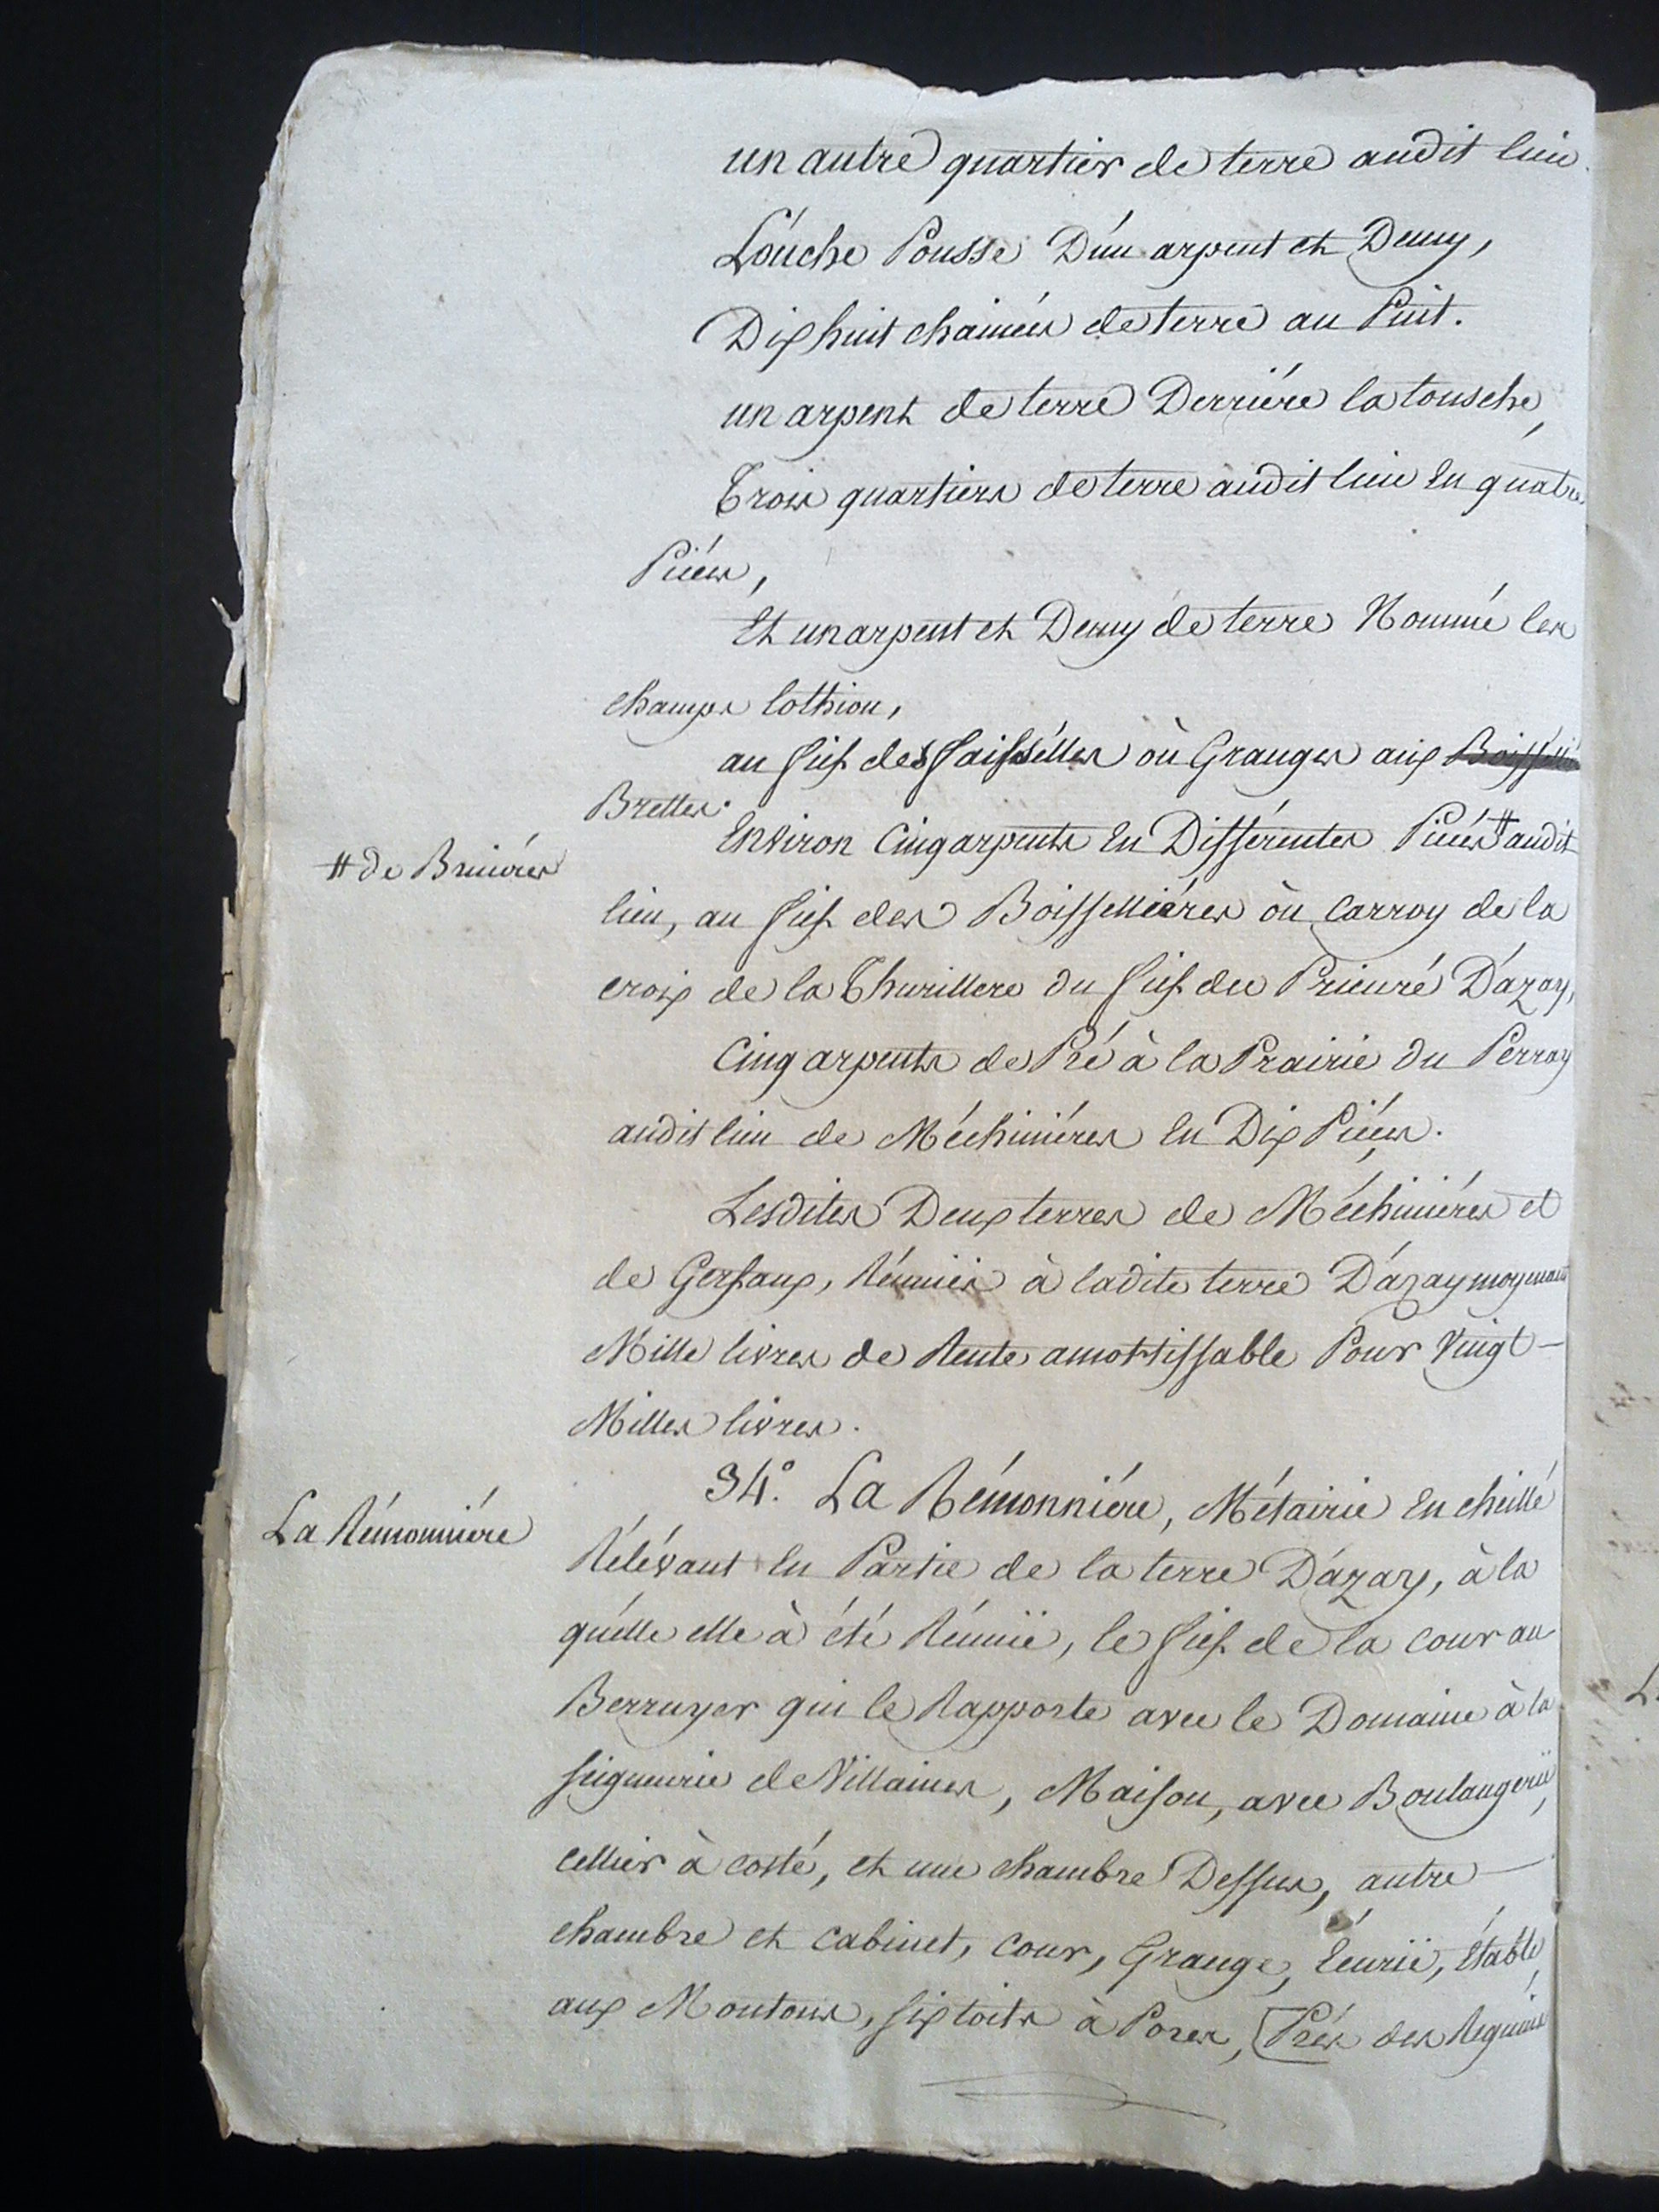 un autre quartier de terre audit lieu.
L'óuche Pousse D'un arpent et Demy,
Dix huit chainées de terre au Puit.
un arpent de terre Derriére la tousche,
Trois quartiers de terre audit lieu En quatre
Piéces,
Et un arpent et Demy de terre Nommé les
champs lothion,
au fief des faisselles où Granges aux Boisseliè
Brettes.
# de Bruiéres
Environ Cinq arpents En Différentes Piéces # audit
lieu, au fief des Boisselliéres où Carroy de la
croix de la Thurillere du fief du Prieuré D'azay,
Cinq arpents de Pré à la Prairie du Perray
audit lieu de Méchiniéres En Dix Piéces.
Lesdites Deux terres de Méchiniéres et
de Gerfaux, Réunies à ladite terre D'azay moyenant
Mille livres de Rente amortissable Pour Vingt-
Milles livres.
La Rémonniére
34.° La Rémonniére, Métairie En cheillé
Rélévant En Partie de la terre D'azay, à la
quélle elle à été Réunië, le fief de la Cour au
Berruyer qui le Rapporte avec le Domaine à la
seigneurie de Villaines, Maison, avec Boulangerië,
cellier à costé, et une chambre Dessus, autre
chambre et Cabinet, Cour, Grange, Ecurië, Etable
aux Moutons, six toits à Porcs, Prés des